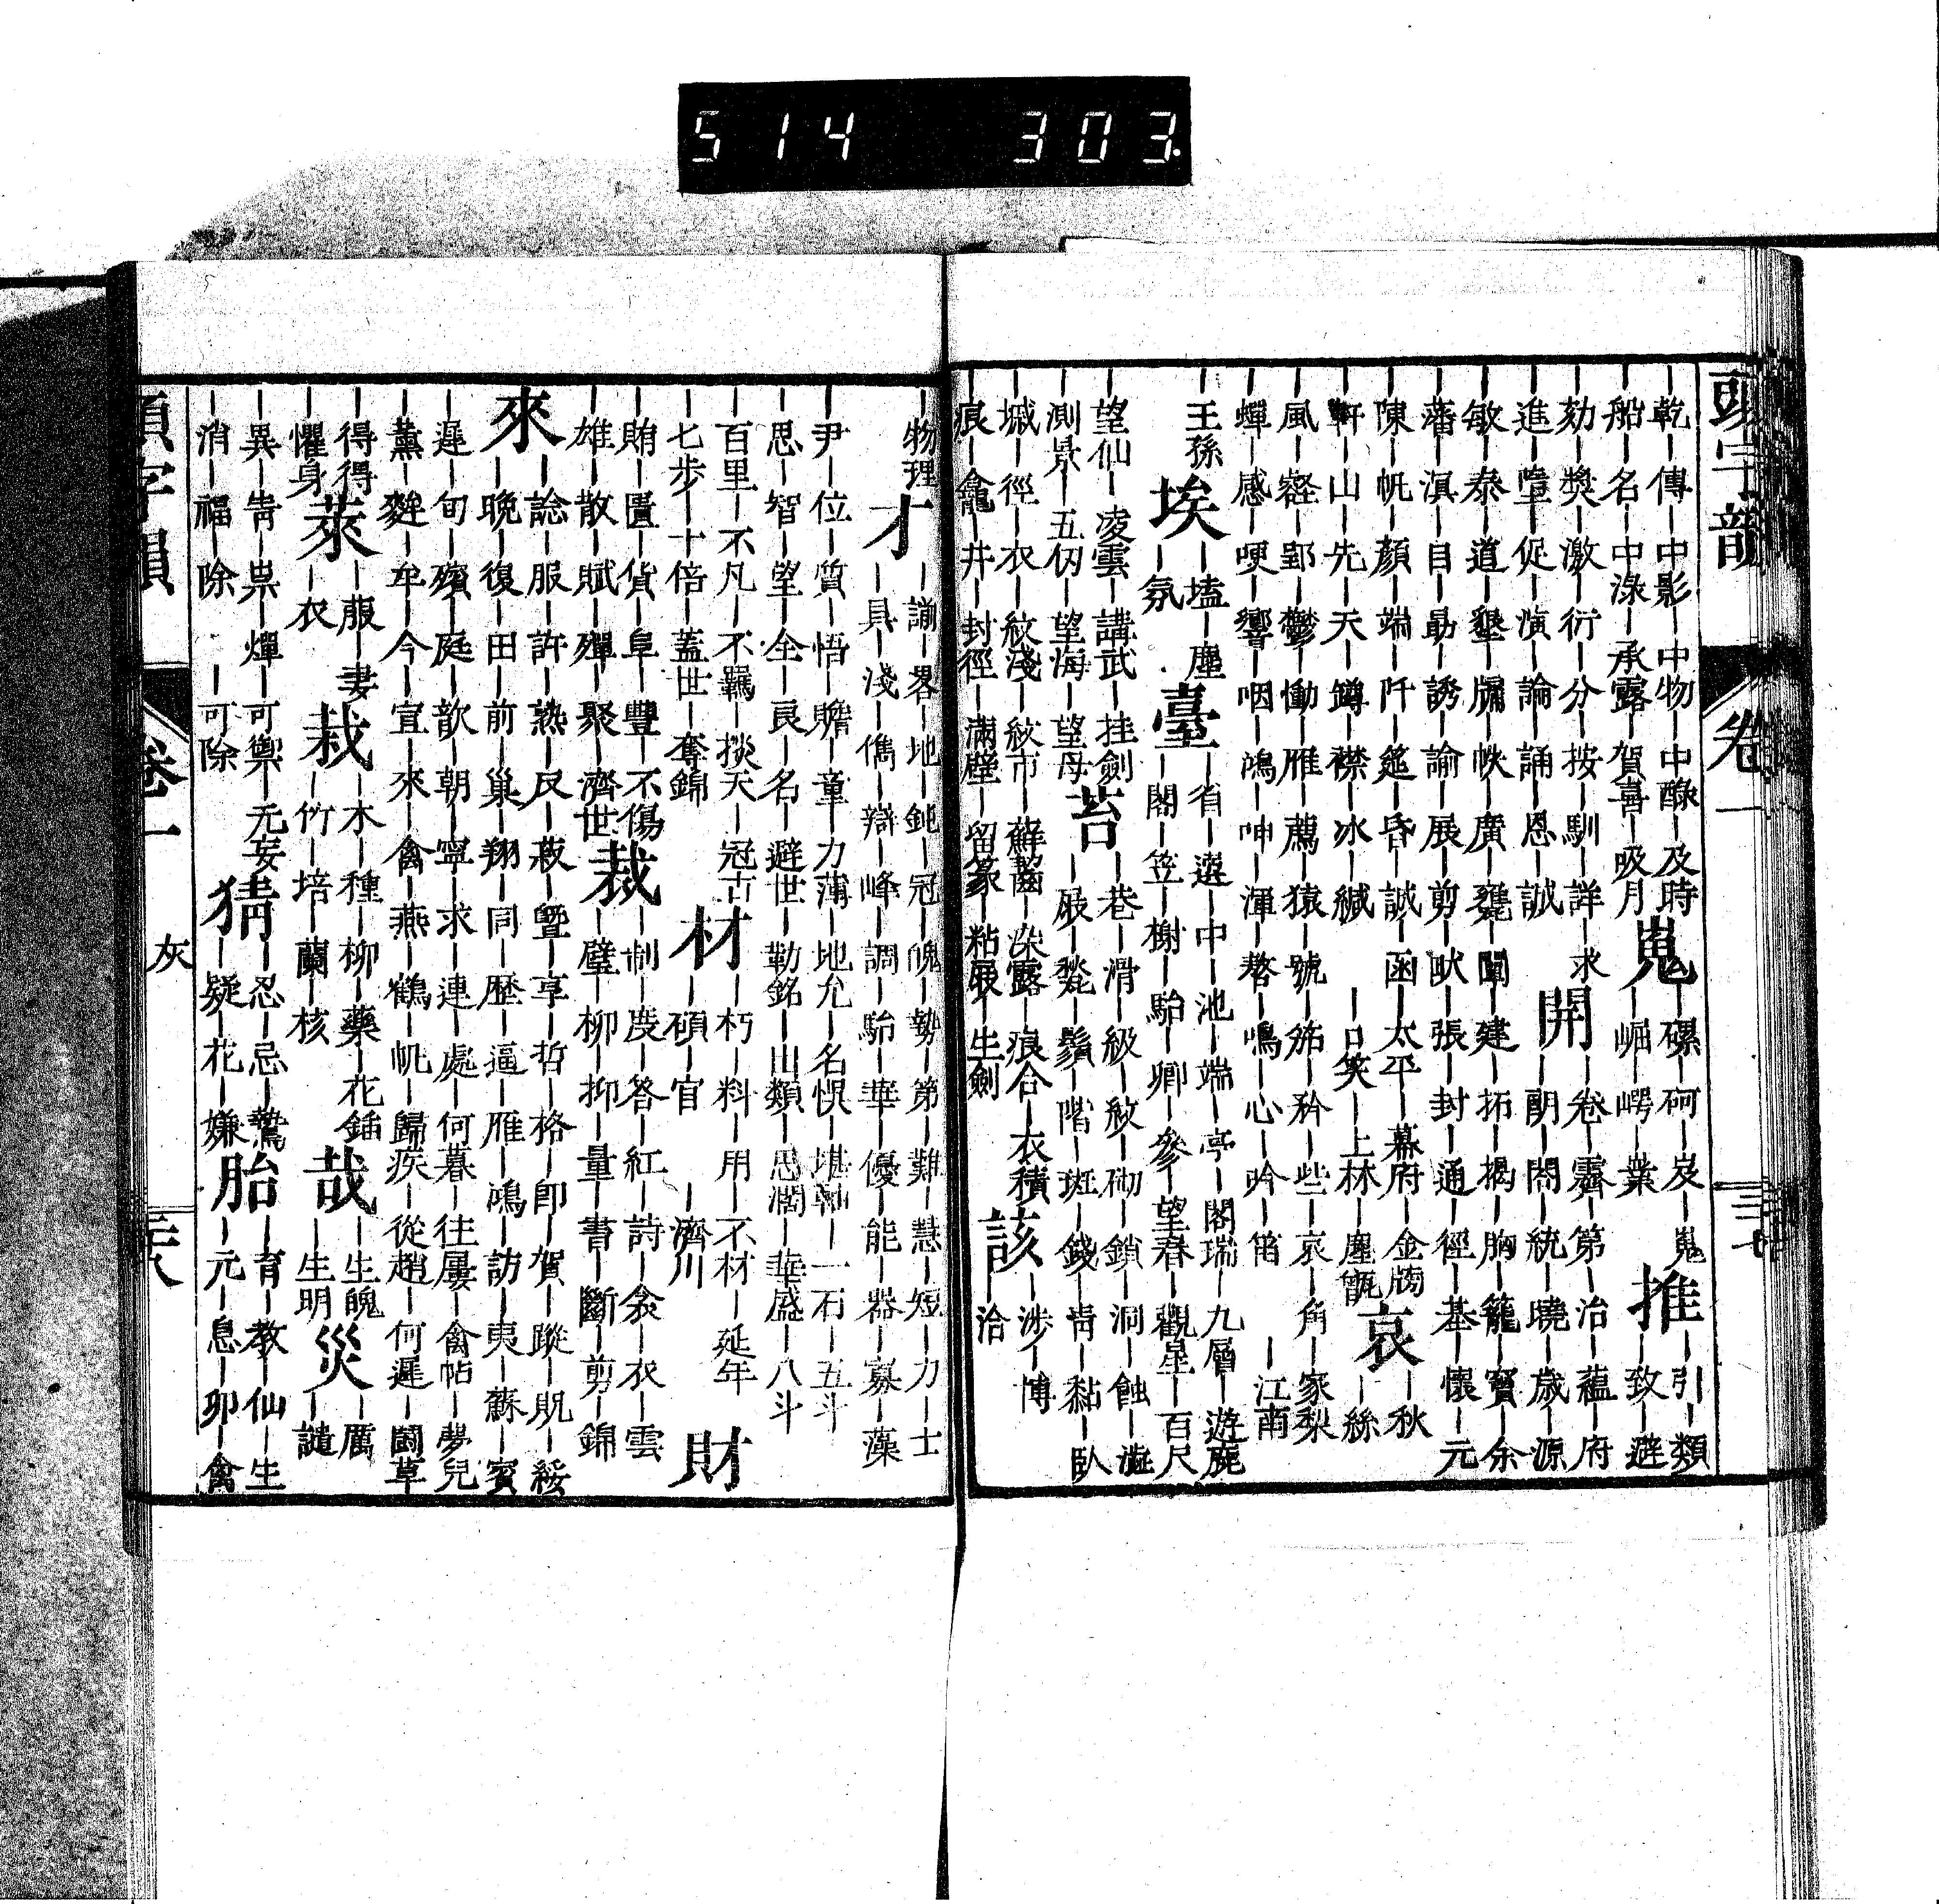 514 303.
頭字韻 卷一
｜乾｜傳｜中影｜中物｜中醁｜及時
｜船｜名｜中淥｜承露｜賀喜｜吸月
嵬
｜磥｜砢｜岌｜嵬
｜崛｜崿｜業
推
｜引｜類
｜致｜避
｜劾｜獎｜激｜衍｜分｜按｜馴｜詳｜求
開
｜卷｜霽｜第｜治｜蘊｜府
｜進｜喧｜促｜演｜論｜誦｜恩｜誠
｜朗｜閤｜統｜曉｜歲｜源
｜敏｜泰｜道｜墾｜牖｜帙｜廣｜甕｜闢｜建｜拓｜揭｜胸｜籠｜寶｜余
｜藩｜滇｜目｜勗｜誘｜諭｜展｜剪｜畎｜張｜封｜通｜徑｜基｜懷｜元
｜陳｜帆｜顏｜端｜阡｜筵｜昏｜誠｜函｜太平｜幕府｜金牓
｜軒｜山｜先｜天｜鐏｜襟｜冰｜緘｜口笑｜上林｜塵甑
哀
｜秋
｜絲
｜風｜壑｜郢｜鬱｜慟｜雁｜薦｜猿｜號｜笳｜矜｜些｜哀｜角｜家梨
｜蟬｜感｜哽｜響｜咽｜鴻｜呻｜渾｜磬｜鳴｜心｜吟｜笛｜江南
｜王孫
埃
｜壒｜塵
｜氛
臺
｜省｜選｜中｜池｜端｜亭｜閣瑞｜九層｜遊鹿
｜閣｜笠｜榭｜駘｜卿｜參｜望春｜觀星｜百尺
｜望仙｜凌雲｜講武｜挂劍
｜測景｜五仞｜望海｜望母
苔
｜巷｜滑｜級｜紋｜砌｜鎖｜洞｜蝕｜澁
｜屐｜甃｜鬚｜階｜斑｜錢｜靑｜黏｜臥
｜城｜徑｜衣｜紋淺｜紋市｜蘇齧｜染露｜痕合｜衣積
｜痕｜龕｜井｜封徑｜滿壁｜留篆｜粘屐｜生劍
該
｜涉｜博
｜洽
三十七
｜物理
才
｜諭｜畧｜地｜鈍｜冠｜魄｜勢｜第｜難｜慧｜短｜力｜士
｜具｜淺｜儁｜辯｜峰｜調｜駘｜華｜優｜能｜器｜寡｜藻
｜尹｜位｜質｜悟｜贍｜童｜力薄｜地尢｜名悞｜堪軸｜一石｜五斗
｜思｜智｜望｜全｜良｜名｜避世｜勒銘｜山類｜思濶｜華盛｜八斗
｜百里｜不凡｜不羈｜掞天｜冠古
｜七步｜十倍｜蓋世｜奪錦
材
｜朽｜料｜用｜不材｜延年
｜碩｜官｜濟川
財
｜賄｜匱｜貨｜阜｜豐｜不傷
｜雄｜散｜賦｜殫｜聚｜濟世
裁
｜制｜度｜答｜紅｜詩｜衾｜衣｜雲
｜璧｜柳｜抑｜量｜書｜斷｜剪｜錦
來
｜諗｜服｜許｜熟｜反｜菽｜曁｜享｜哲｜格｜卽｜賀｜蹤｜貺｜綏
｜晚｜復｜田｜前｜巢｜翔｜同｜歷｜逼｜雁｜鴻｜訪｜夷｜蘇｜賓
｜遲｜旬｜殯｜庭｜歆｜朝｜寧｜求｜連｜處｜何暮｜往屢｜禽帖｜夢兒
｜薰｜麰｜牟｜今｜宣｜來｜禽｜燕｜鶴｜帆｜歸疾｜從趙｜何遲｜鬭草
｜得得
｜懼身
萊
｜菔｜妻
｜衣
栽
｜木｜種｜柳｜藥｜花鍤
｜竹｜培｜蘭｜核
哉
｜生魄
｜生明
災
｜厲
｜譴
｜異｜眚｜祟｜燀｜可禦｜元妄
｜消｜福｜除｜可除
猜
｜忍｜忌｜驚
｜疑｜花｜嫌
胎
｜育｜教｜仙｜生
｜元｜息｜卵｜禽
頭字韻 卷一 灰 三十八